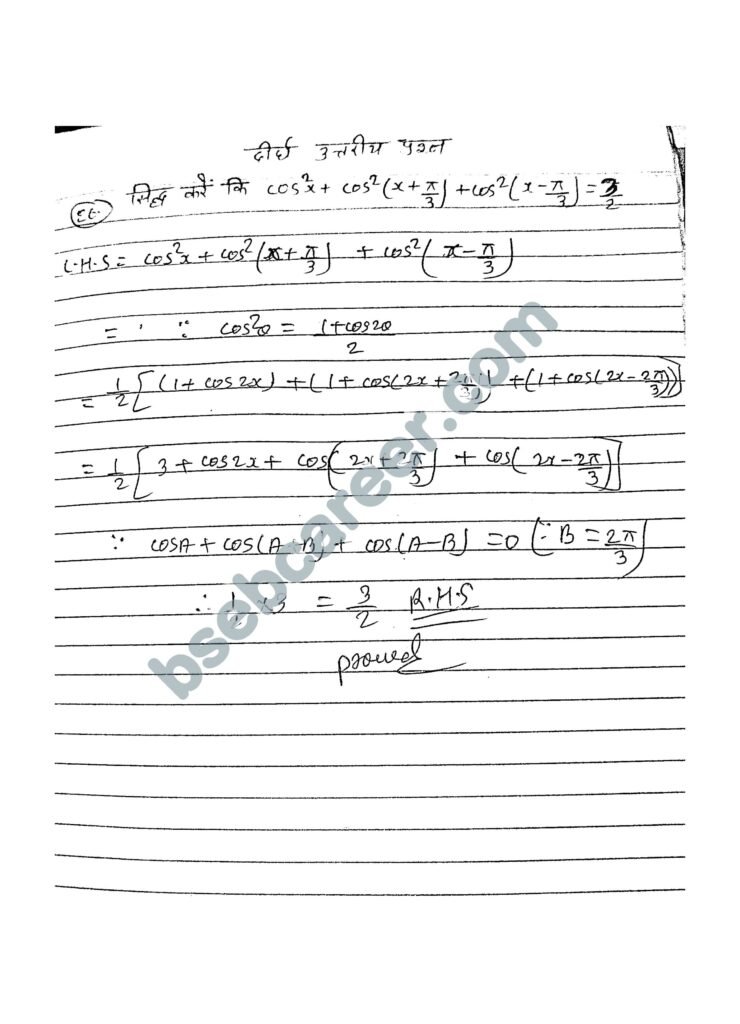 दीर्घ उत्तरीय प्रश्न
सिद्ध करें कि cos²x + cos²(x+π/3) + cos²(x-π/3) = 3/2
L.H.S = cos²x + cos²(x+π/3) + cos²(x-π/3)
= ∵ cos²θ = (1+cos2θ)/2
= 1/2[(1+cos2x)+(1+cos(2x+2π/3))+(1+cos(2x-2π/3))]
= 1/2[3+cos2x+cos(2x+2π/3)+cos(2x-2π/3)]
∵ cosA+cos(A+B)+cos(A-B)=0 (∵B=2π/3)
∴ 1/2×3 = 3/2 R.H.S
proved
bsebcareer.com